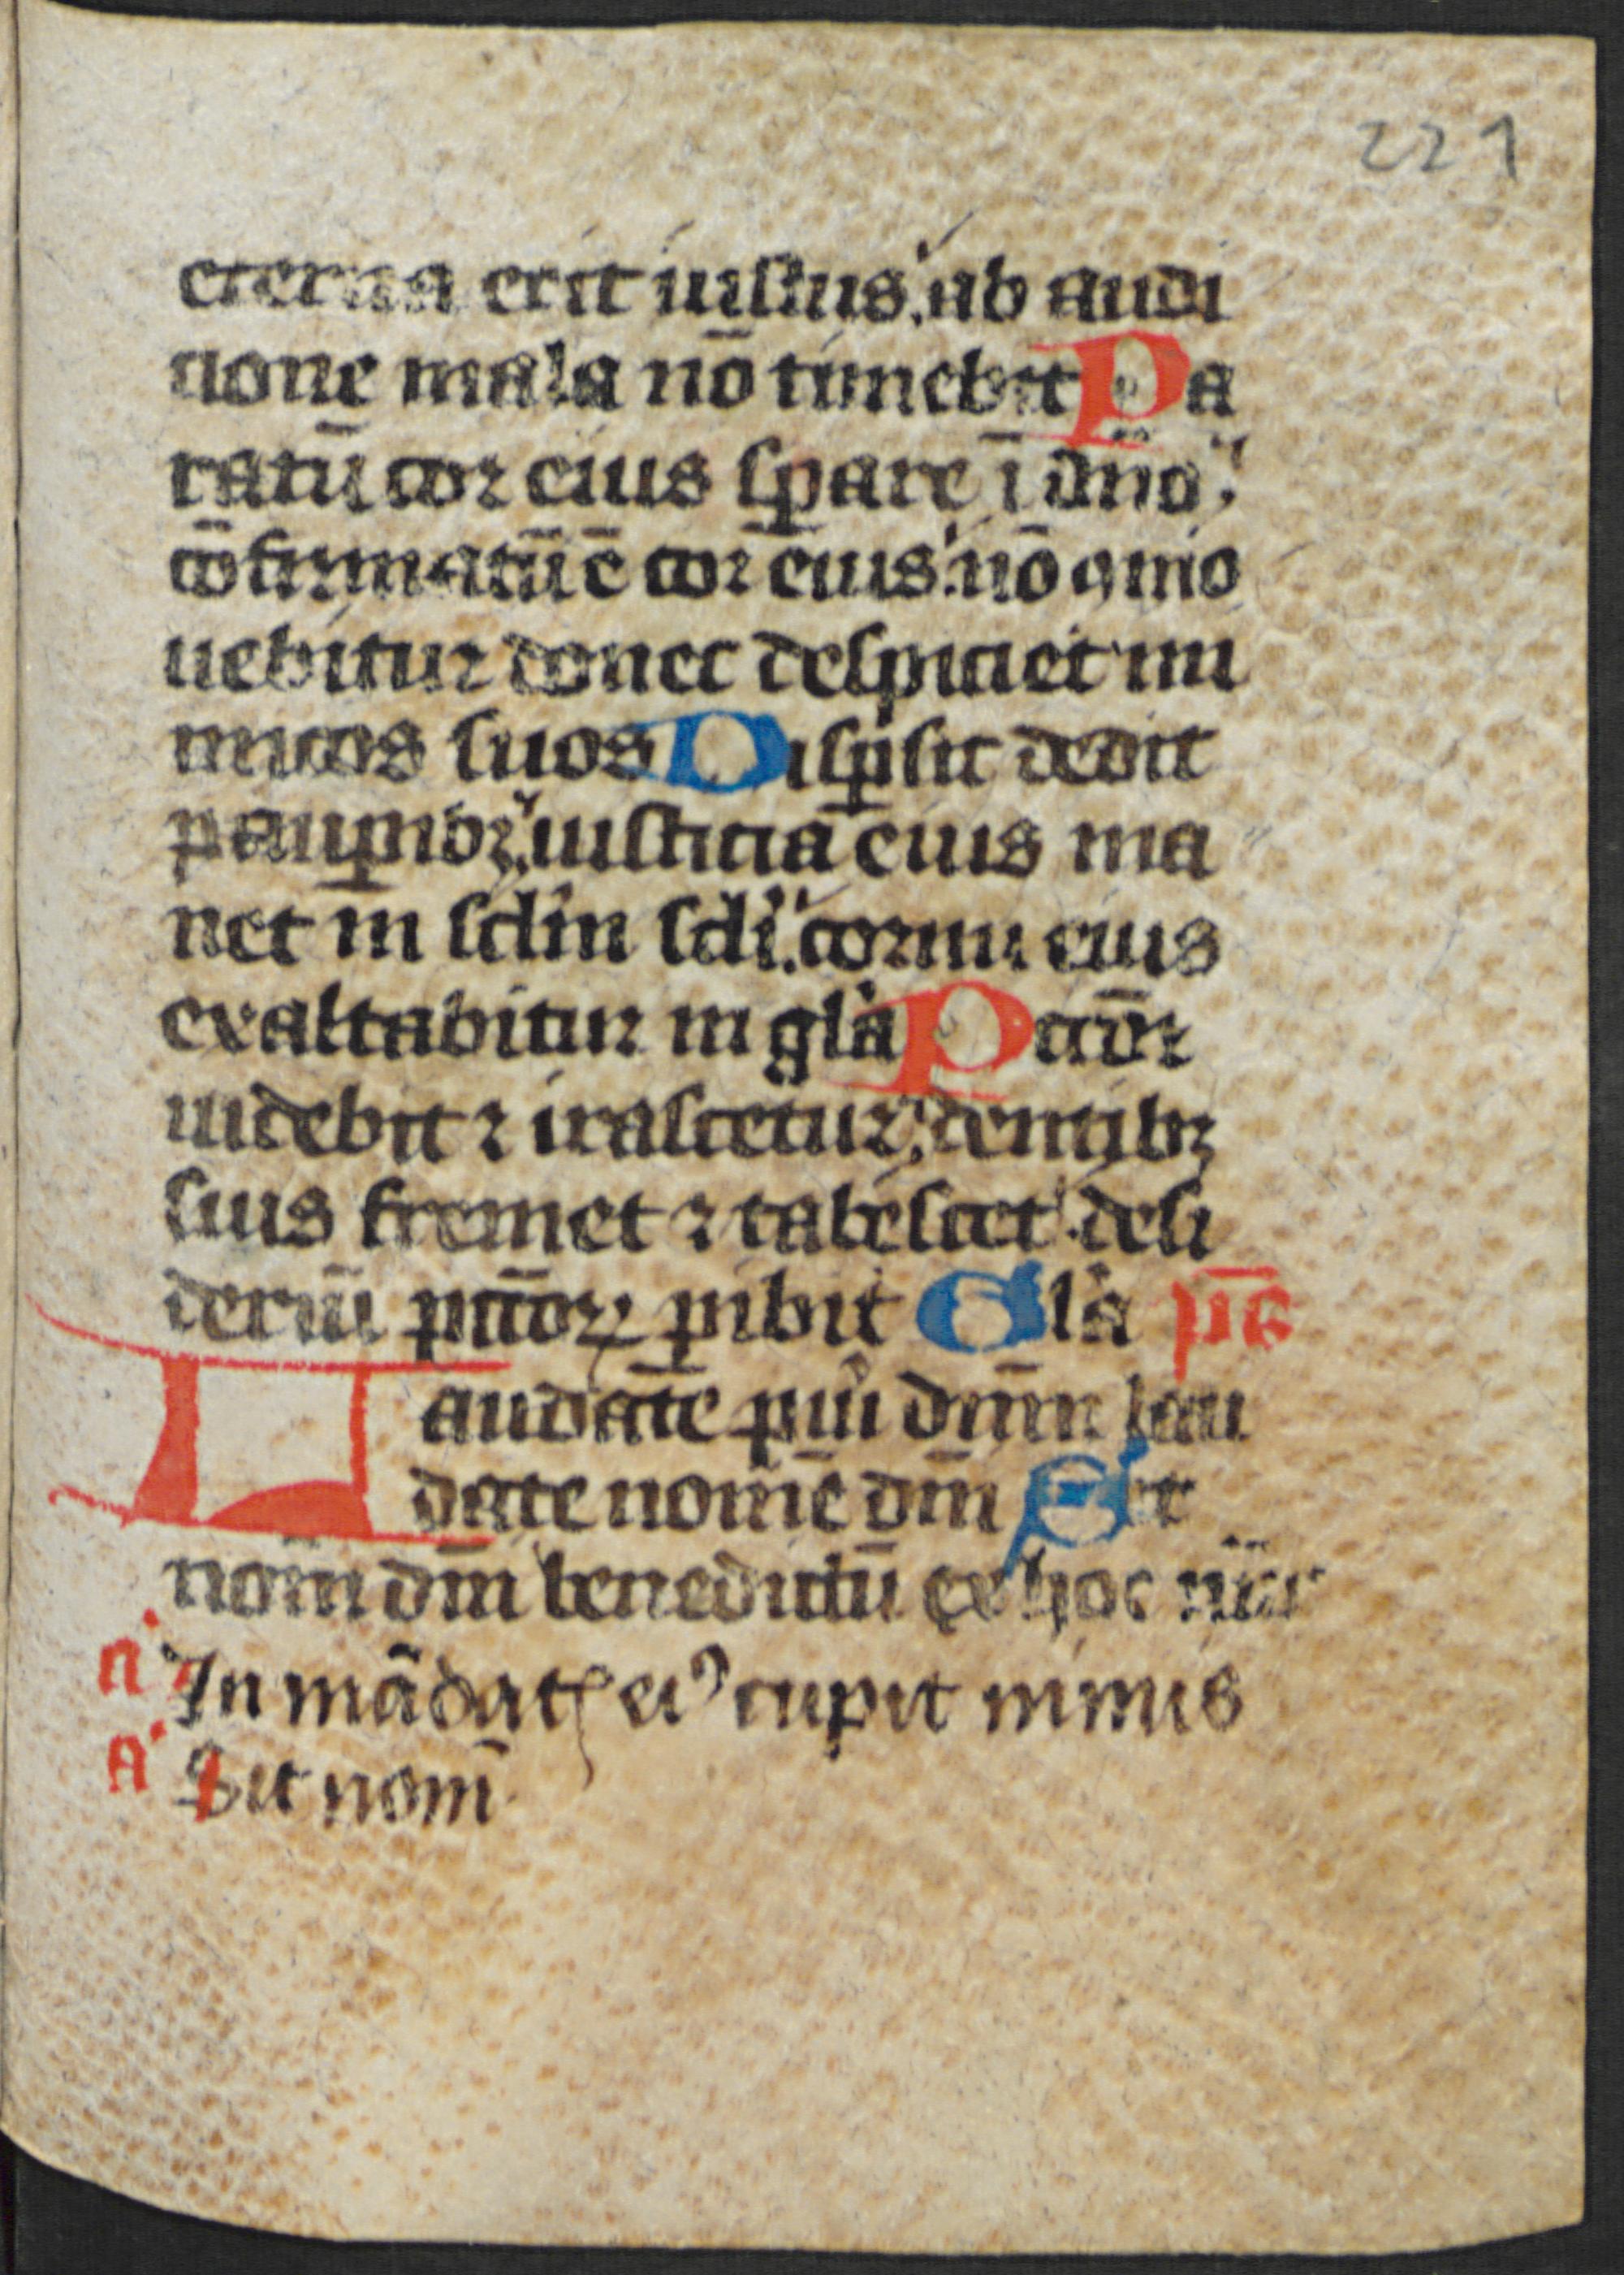 221
eterna erit iustus. ab audi
tione mala nō timebit Pa
ratū cor eius sꝑare ī dn̄o.
cōfirmatū ē cor eius. nō ꝯmo
uebitur donec despiciet ini
micos suos Disꝑsit dedit
pauꝑiboꝫ. iusticia eius ma
net in sclm̄ scli. cornu eius
exaltabitur in gl̄a Pctōr
uidebit ⁊ irascetur. dentibꝫ
suis fremet ⁊ tabescet. desi
deriū pctōꝝ ꝑibit Gl̄a ps̄
Laudate pui dn̄m lau
date nomē dn̄i Sit
nom̄ dn̄i benedictū ex hoc nūc
A In mādatꝭ eiꝰ cupit nimis
A Sit nom̄